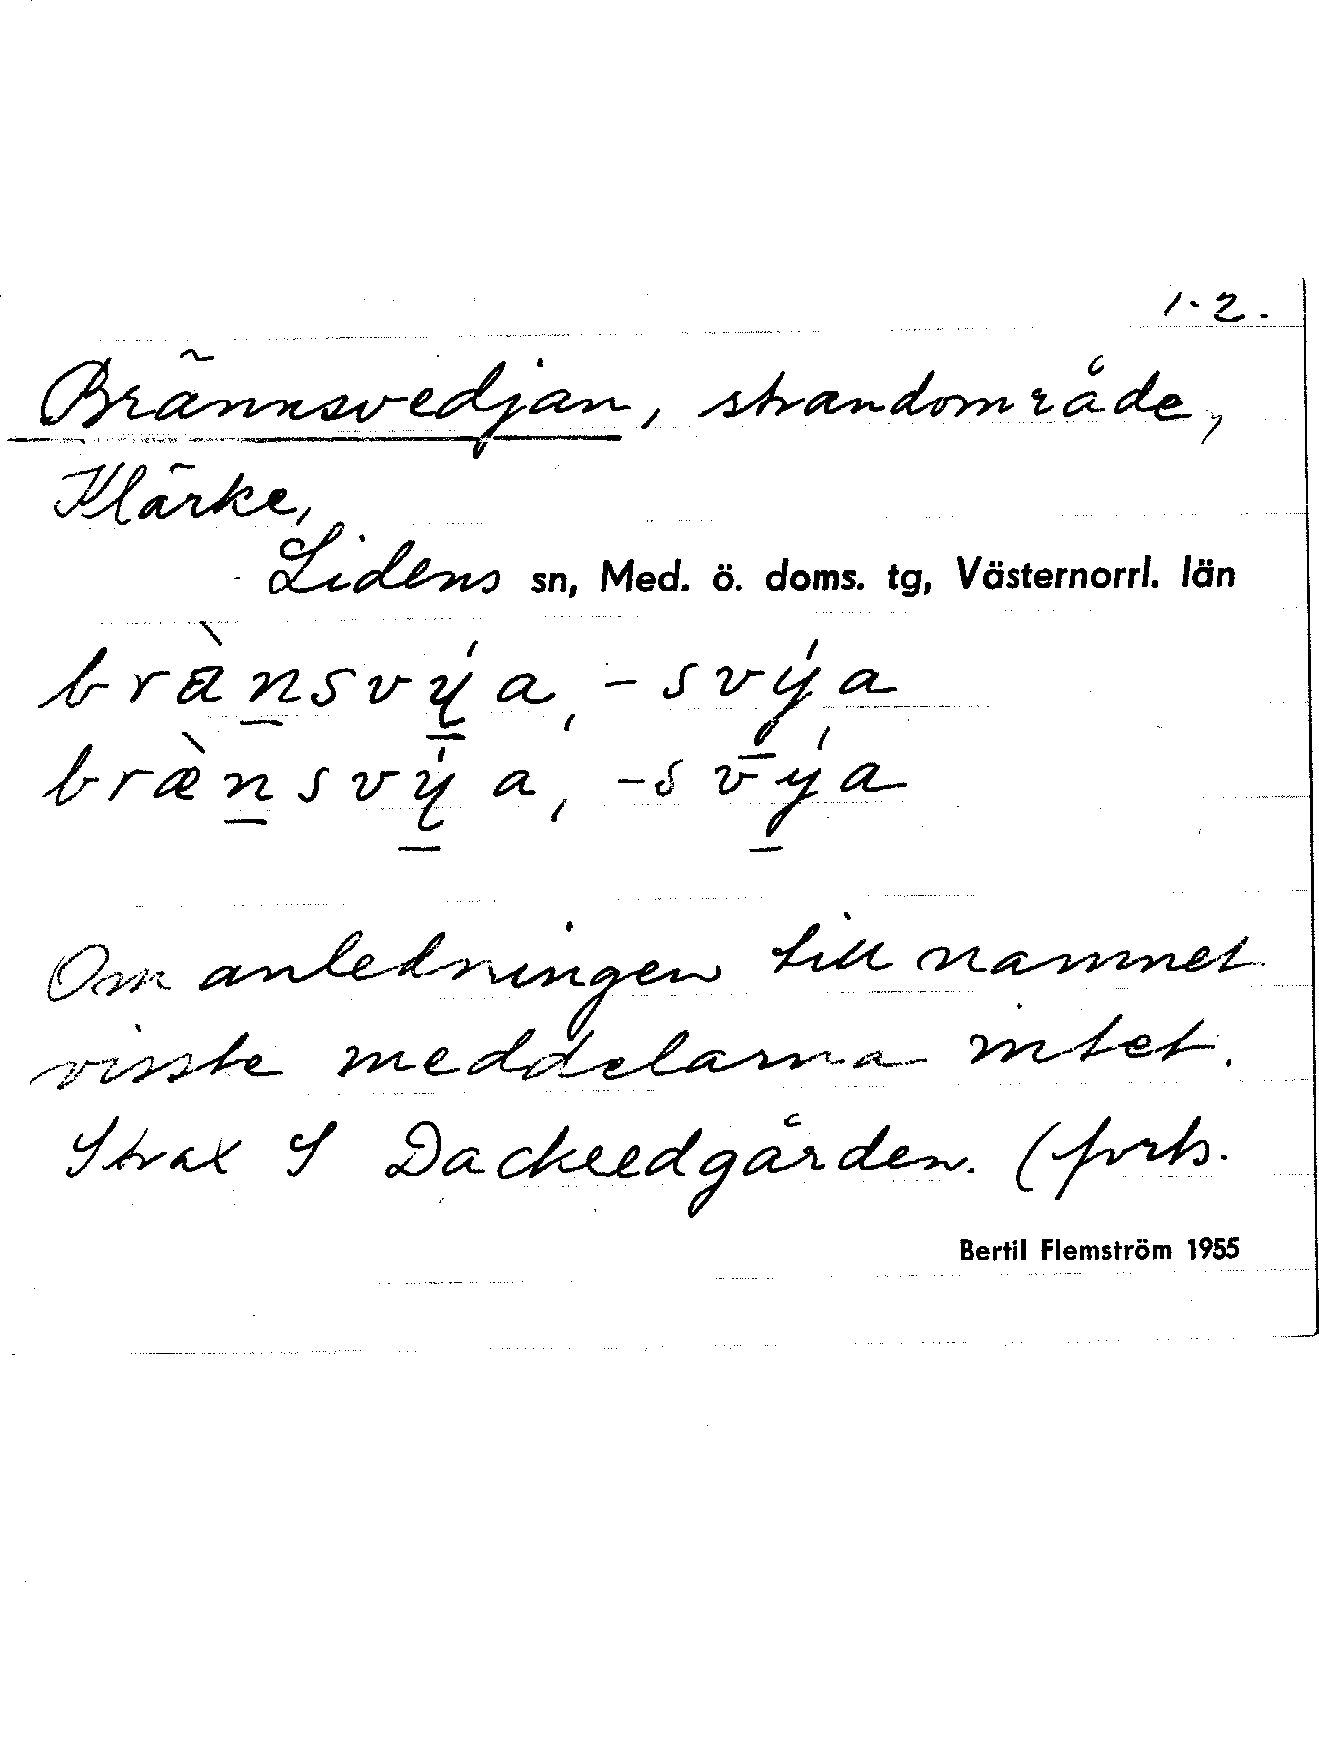 1-2.
Brännsvedjan, strandområde,
Klärke,
Lidens sn, Med. ö. doms. tg, Västernorrl. län
brànsvýa, -svýa
bræ̀nsvýa, -svýa
Om anledningen till namnet
visste meddelarna intet.
Strax S Dackeedgården. (forts.
Bertil Flemström 1955